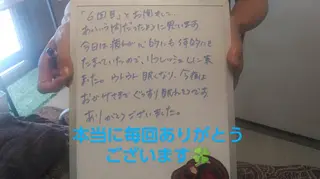 「6回目」とお聞きして
あっという間だったように思います
今日は撮んか心的にも体的にも
たまっていたので、リフレッシュしに来
ました。ウトウト眠くなり、今夜は
おかげさまでぐっすり眠れそうです
ありがとうございました。
本当に毎回ありがとう
ございます🍀